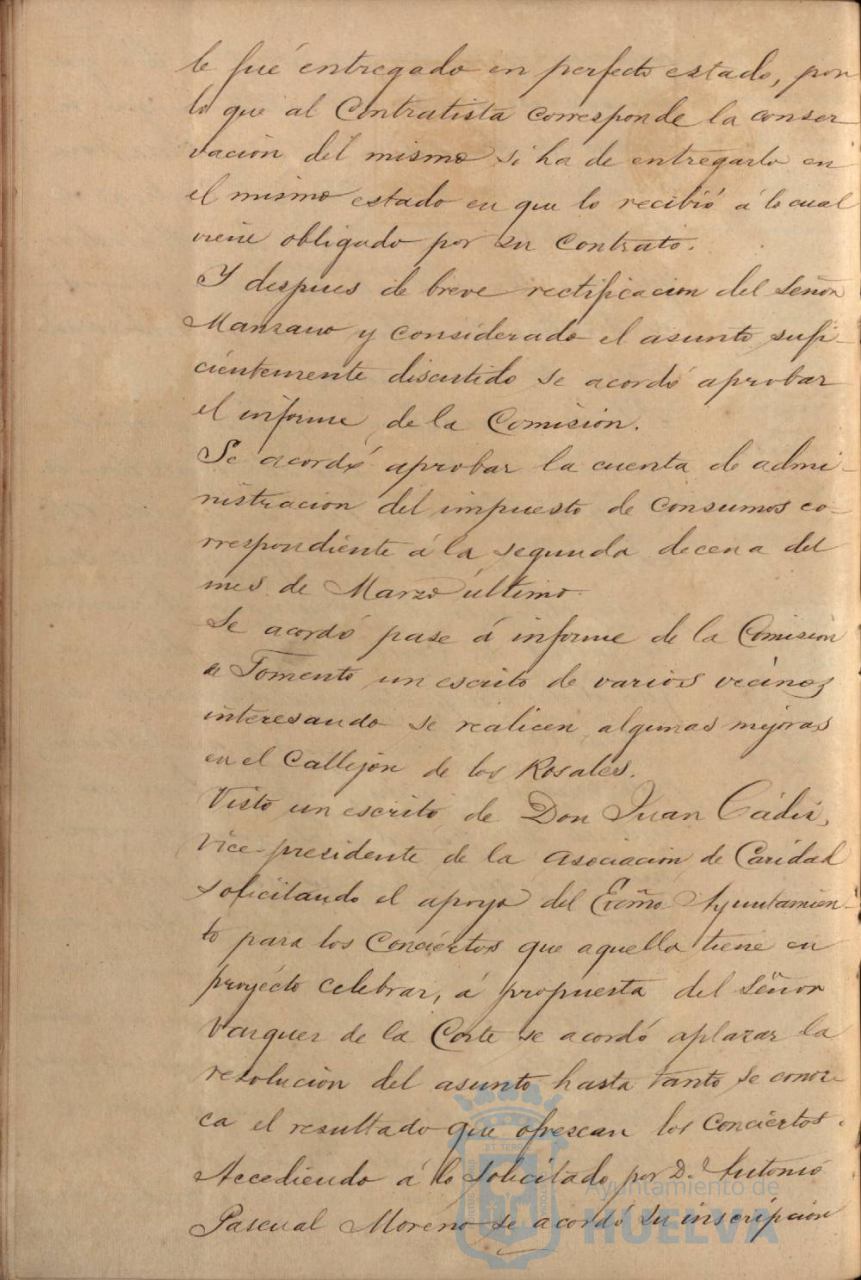 le fué entregado en perfecto estado, por
lo que al Contratista corresponde la conser
vacion del mismo si ha de entregarlo en
el mismo estado en que lo recibió á lo cual
viene obligado por su Contrato.
Y despues de breve rectificacion del Señor
Manzano y considerado el asunto sufi-
cientemente discutido se acordó aprobar
el informe de la Comision.
Se acordó aprobar la cuenta de admi-
nistracion del impuesto de Consumos co-
rrespondiente á la segunda decena del
mes de Marzo último.
Se acordó pase á informe de la Comision
de Fomento un escrito de varios vecinos
interesando se realicen algunas mejoras
en el Callejon de los Rosales.
Visto un escrito de Don Juan Cádiz,
Vice-presidente de la asociacion de Caridad
solicitando el apoyo del Excmo Ayuntamien-
to para los Conciertos que aquella tiene en
proyécto celebrar, á propuesta del Señor
Vazquez de la Corte se acordó aplazar la
resolucion del asunto hasta tanto se conoz-
ca el resultado que ofrescan los conciertos.
Accediendo á lo solicitado por D. Antonio
Pascual Moreno se acordó su inscripcion
Ayuntamiento de
HUELVA